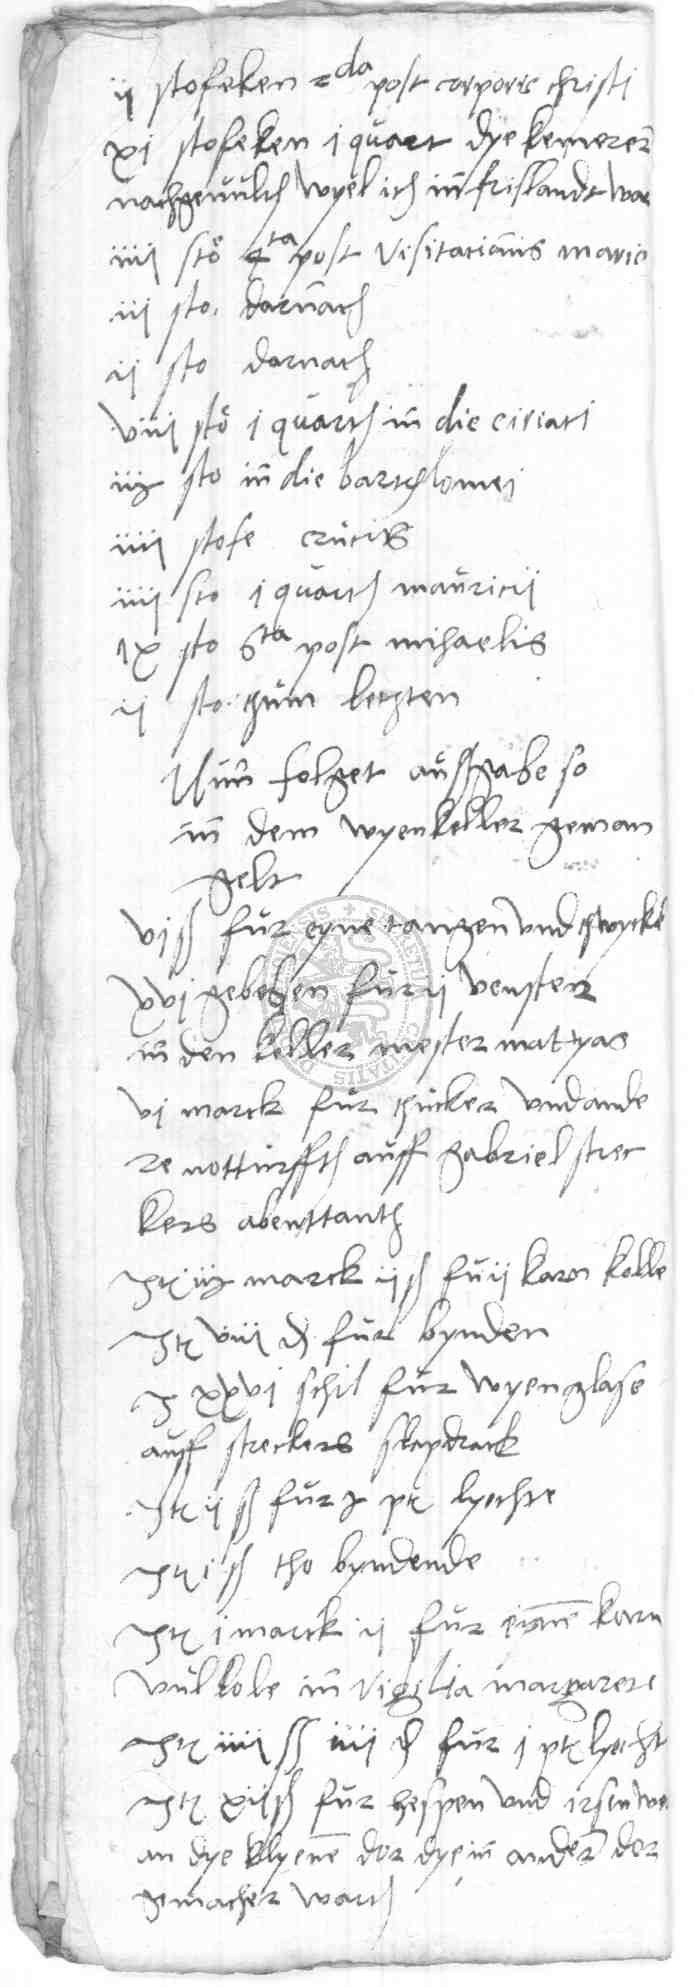 ij stofeken 2da post corporis christi
xj stofeken j quart dye kemerer
nachgevült wyel ich in frislandt was
iiij sto 4ta post visitacionis marie
iij sto. darnach
ij sto darnach
viij sto j quart in die ciriaci
iij sto in die bartholomei
iiij stofe crucis
iiij sto j quart mauricij
ix sto 6ta post mihaelis
ij sto. thum letzten
Nun folget aussgabe so
in dem wyenkeller geman
gelt
vj ß für eyne tangen und
xvj für ij venster
in den keller mester matyas
vj marck für zucker und ande
re notturffth auff gabriel strec
kers abenttantz
Itt marck ij ß für ij karn kolle
Itt viij d für bynden
I xxvj schil für wyenglase
auff streckers
Itt ij ß für pt lyechte
Itt j ß tho byndende
Itt j marck ij für eynen karn
vulkole in vigilia margarete
Itt iiij ß iiij d für j pt lyecht
Itt xij ß für hespen und
an dye klyene dor dye in ander dor
gemachet wart